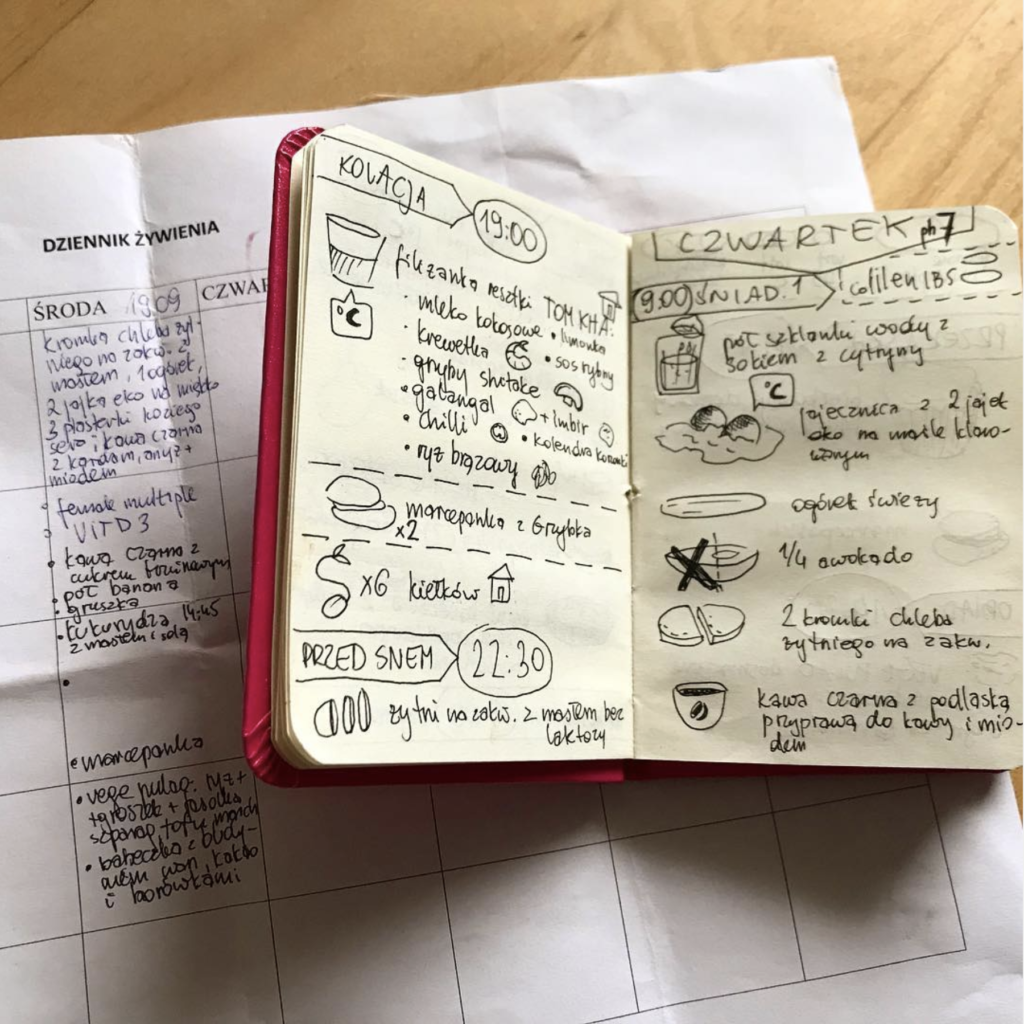 DZIENNIK ŻYWIENIA
ŚRODA 19.09
CZWAR
kromka chleba żyt-
niego na zakw. z
masłem, 1 ogórek,
2 jajka eko na miękko
3 plasterki koziego
sera i kawa czarna
z kardam, anyż +
miodem
female multiple
VIT D3
kawa czarna z
cukrem
pół banana
gruszka
kukurydza 14:45
z masłem i solą
marcepanka
vege pulao: ryż +
groszek + fasolka
szparag tofu, march
babeczka z budy-
niem wan, kakao
i borówkami
KOLACJA 19:00
filiżanka resztki TOM KHA:
°C
mleko kokosowe • limonka
krewetka • sos rybny
grzyby shitake
galangal + imbir
chilli • kolendra
ryż brązowy
marcepanka z Grzybka
x2
x6 kiełków
PRZED SNEM 22:30
żytni na zakw. z masłem bez
laktozy
CZWARTEK ph7
9:00 ŚNIAD. 1 colilen IBS
pół szklanki wody z
sokiem z cytryny
°C
jajecznica z 2 jajek
eko na maśle klaro-
wanym
ogórek świeży
1/4 awokado
2 kromki chleba
żytniego na zakw.
kawa czarna z podlaską
przyprawą do kawy i mio-
dem